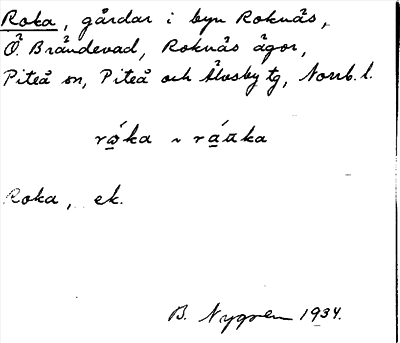 Roka, gårdar i byn Roknäs,
Ö. Brändevad, Roknäs ägor,
Piteå sn, Piteå och Älvsby tg, Norrb. l.
Roka, ek.
B. Nygren 1934.